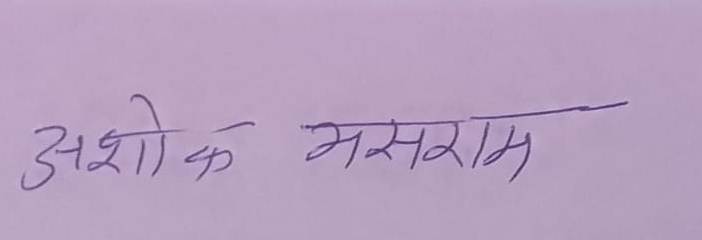 अशोक मसराम